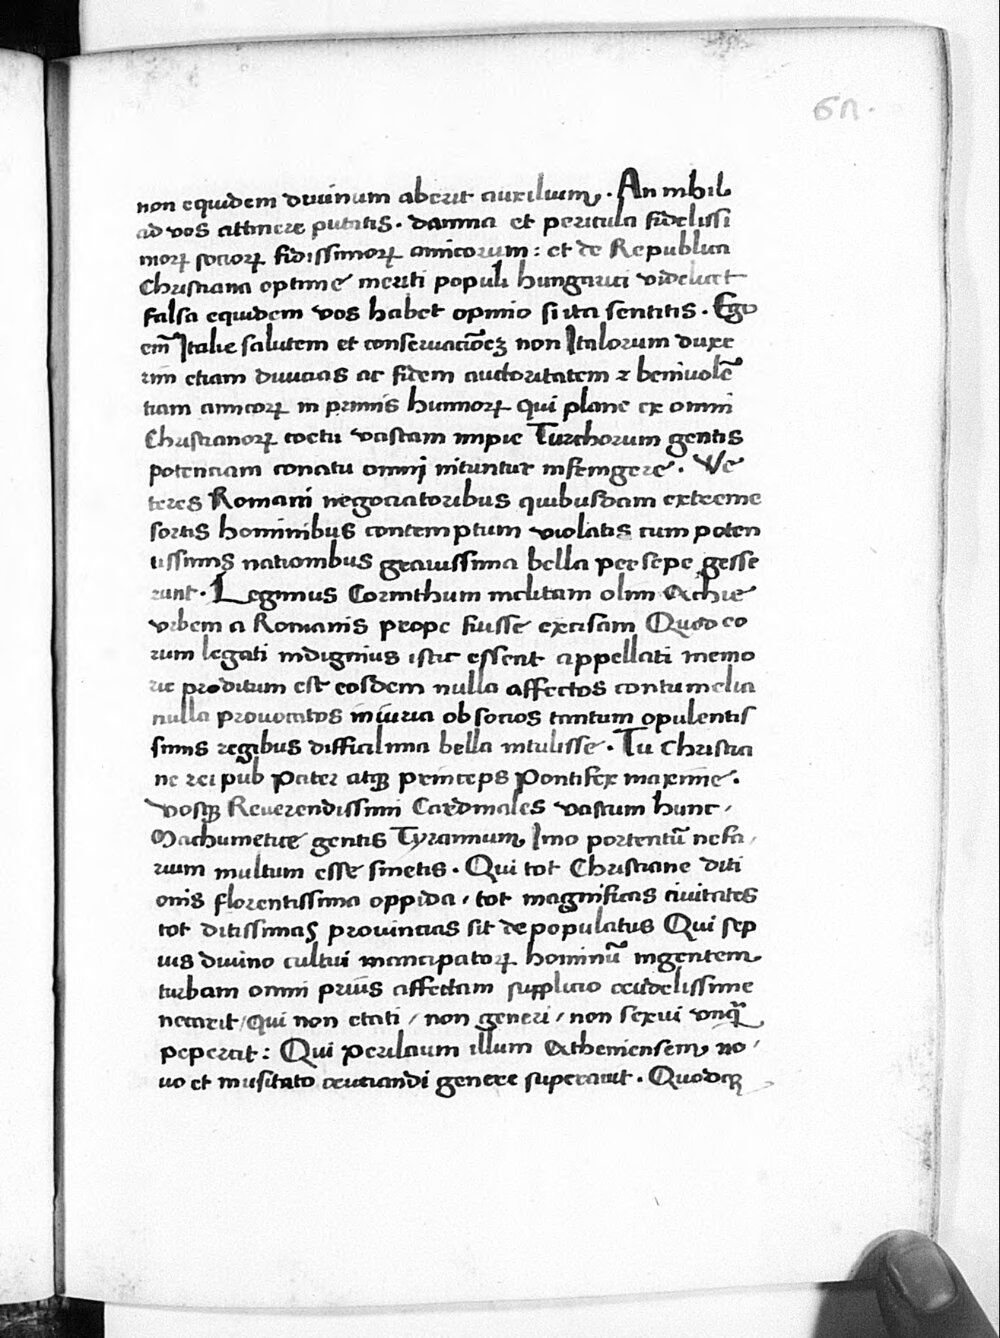 60.
non equidem diuinum aberit auxilium. An nihil
ad vos attinere putatis. damna et pericula fidelissi
morꝝ socioꝝ fidissimoꝝ amicorum: et de Republica
Christiana optime meriti populi hungarici videlicet
falsa equidem vos habet opinio si ita sentitis. Ego
em̃ Italie salutem et conseruacõeꝫ non Italorum duxe
rim etiam diuicias ac fidem auctoritatem ⁊ beniuolẽ
tiam amicoꝝ in primis hunnoꝝ qui plane ex omni
Christianoꝝ coetu vastam impie Turchorum gentis
potenciam conatu omnj nituntur infringere. Ve
teres Romani negociatoribus quibusdam extreme
sortis hominibus contemptum violatis cum poten
tissimis nationibus grauissima bella persepe gesse
runt. Legimus Corinthum inclitam olim Achie
vrbem a Romanis prope fuisse excisam Quod eo
rum legati indignius istic essent appellati memo
rie proditum est eosdem nulla affectos contumelia
nulla prouocatos iniuria ob socios tantum opulentis
simis regibus difficilima bella intulisse. Tu Christia
ne rei pub pater atqꝫ princeps Pontifex maxime.
vosqꝫ Reuerendissimi Cardinales vastum hunc
Machumetice gentis Tyrannum Imo portentũ nefa
rium multum esse sinetis. Qui tot Christiane diti
onis florentissima oppida, tot magnificas ciuitates
tot ditissimas prouincias sit depopulatus Qui sep
ius diuino cultui mancipatoꝝ hominũ ingentem
turbam omni prius affectam supplicio crudelissime
necarit, Qui non etati, non generi, non sexui vnq̃
pepercit: Qui perilaum illum Atheniensem no
uo et inusitato cruciandi genere superauit. Quodqꝫ